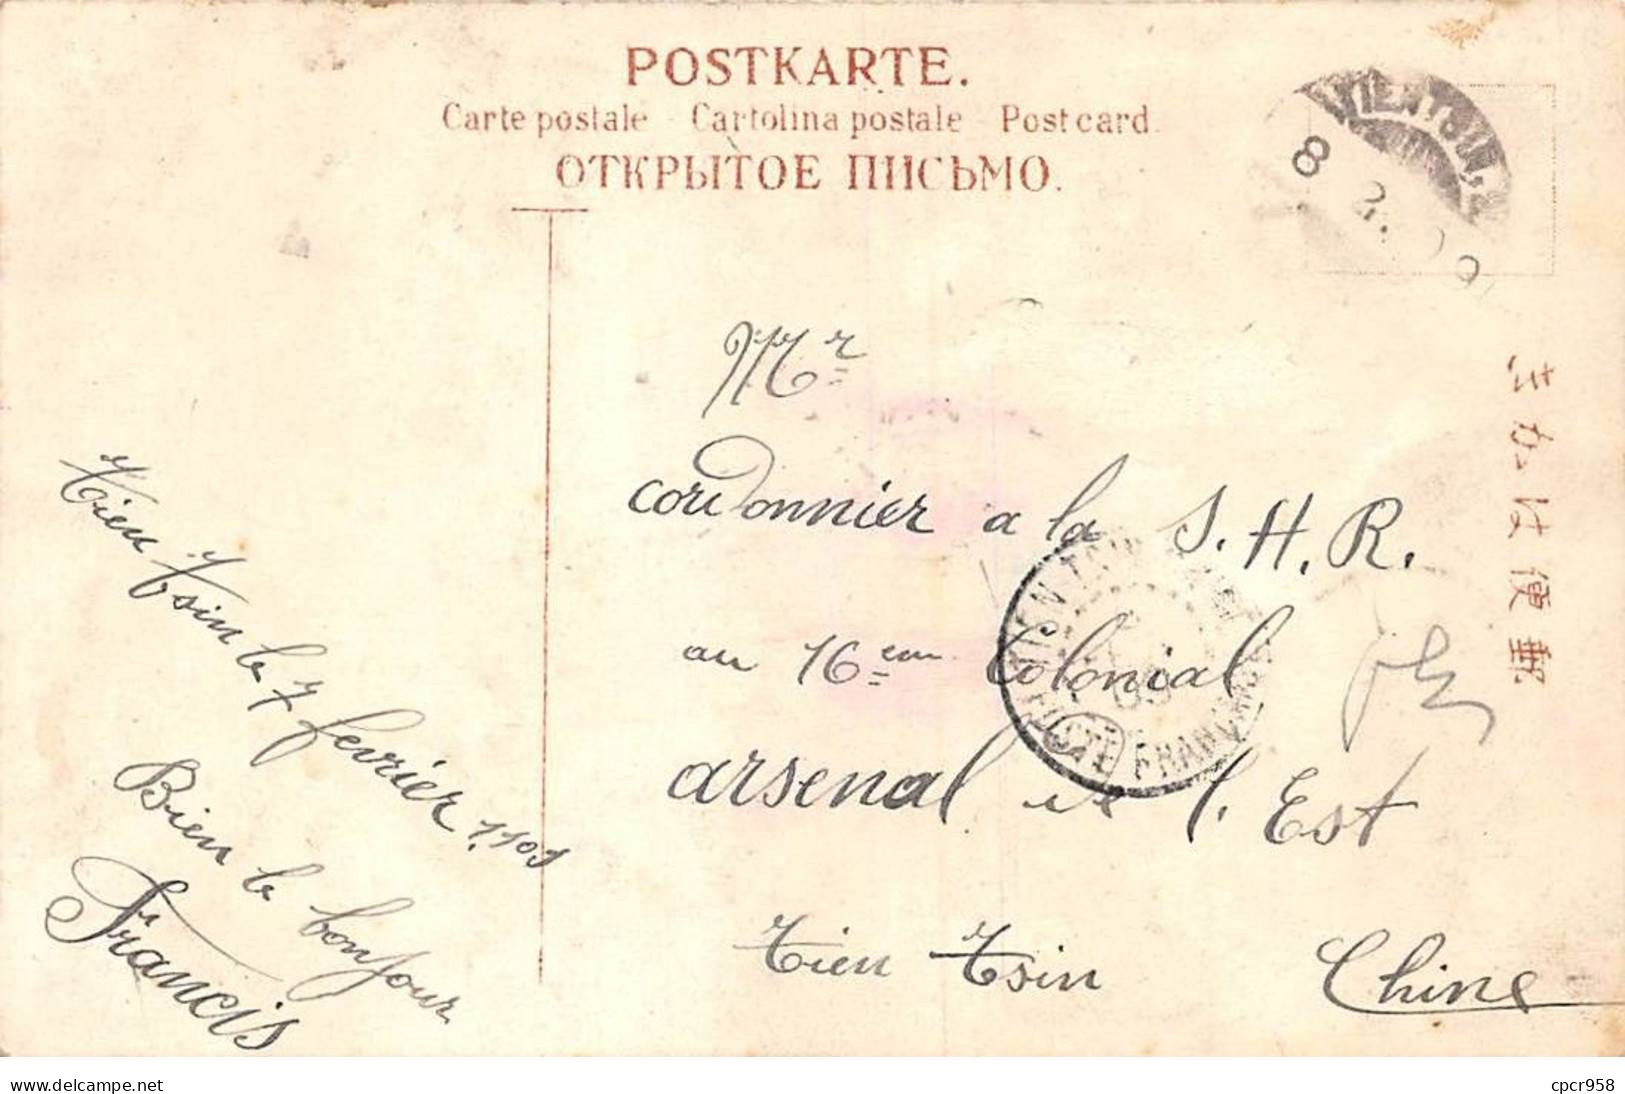 POSTKARTE.
Carte postale - Cartolina postale - Post card.
ОТКРЫТОЕ ПИСЬМО.
TIENTSIN
8
きかは便郵
Mr
cordonnier a la S. H. R.
au 16eme Colonial
arsenal de l'Est
Tien Tsin Chine
TIEN-TSIN
POSTE FRANÇAISE
09
Tien Tsin le 7 fevrier
Bien le bonjour
Francis
delcampe.net
cpcr958